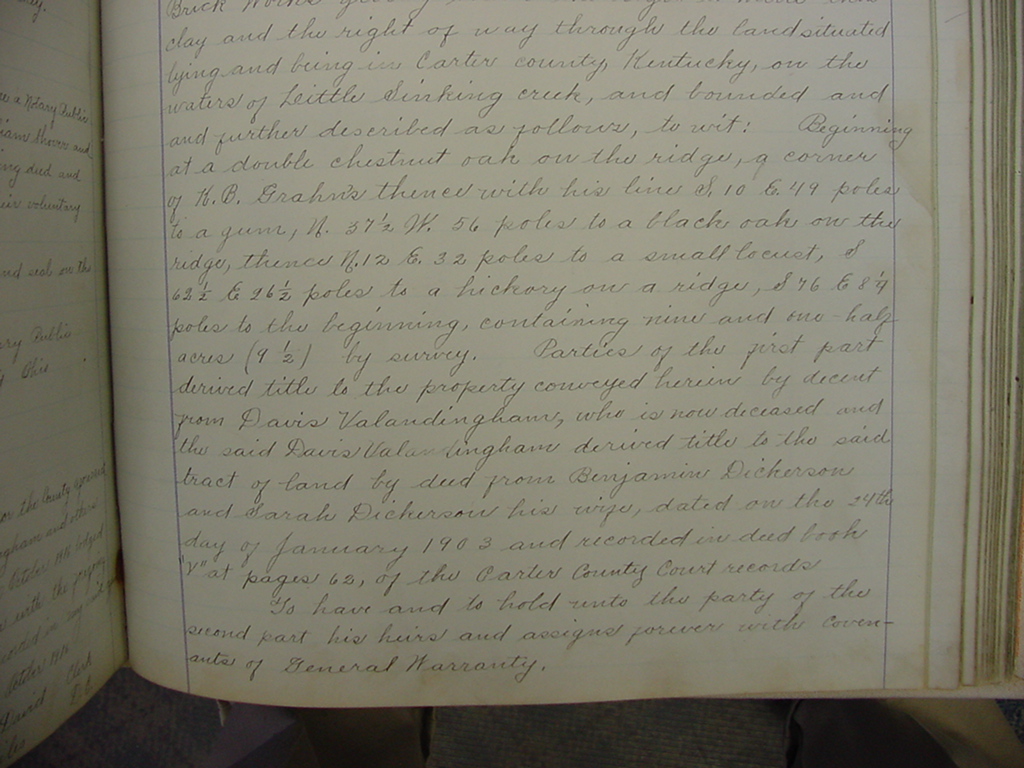 Brick Works
clay and the right of way through the land situated
lying and being in Carter county, Kentucky, on the
waters of Little Sinking creek, and bounded and
and further described as follows, to wit: Beginning
at a double chestnut oak on the ridge, a corner
of K.B. Grahn's thence with his line S. 10 E. 49 poles
to a gum, N. 37½ W. 56 poles to a black oak on the
ridge, thence N. 12 E. 32 poles to a small locust, S
62½ E 26½ poles to a hickory on a ridge, S 76 E 8
poles to the beginning, containing nine and one-half
acres (9½) by survey. Parties of the first part
derived title to the property conveyed herein by decent
from Davis Valandingham, who is now deceased and
the said Davis Valandingham derived title to the said
tract of land by deed from Benjamin Dickerson
and Sarah Dickerson his wife, dated on the 24th
day of January 1903 and recorded in deed book
"V" at pages 62, of the Carter County Court records
To have and to hold unto the party of the
second part his heirs and assigns forever with Coven-
ants of General Warranty.
a Notary Public
deed and
voluntary
and seal on the
Public
This
the County
and others
October
with the
in my
October
Clerk
D.C.